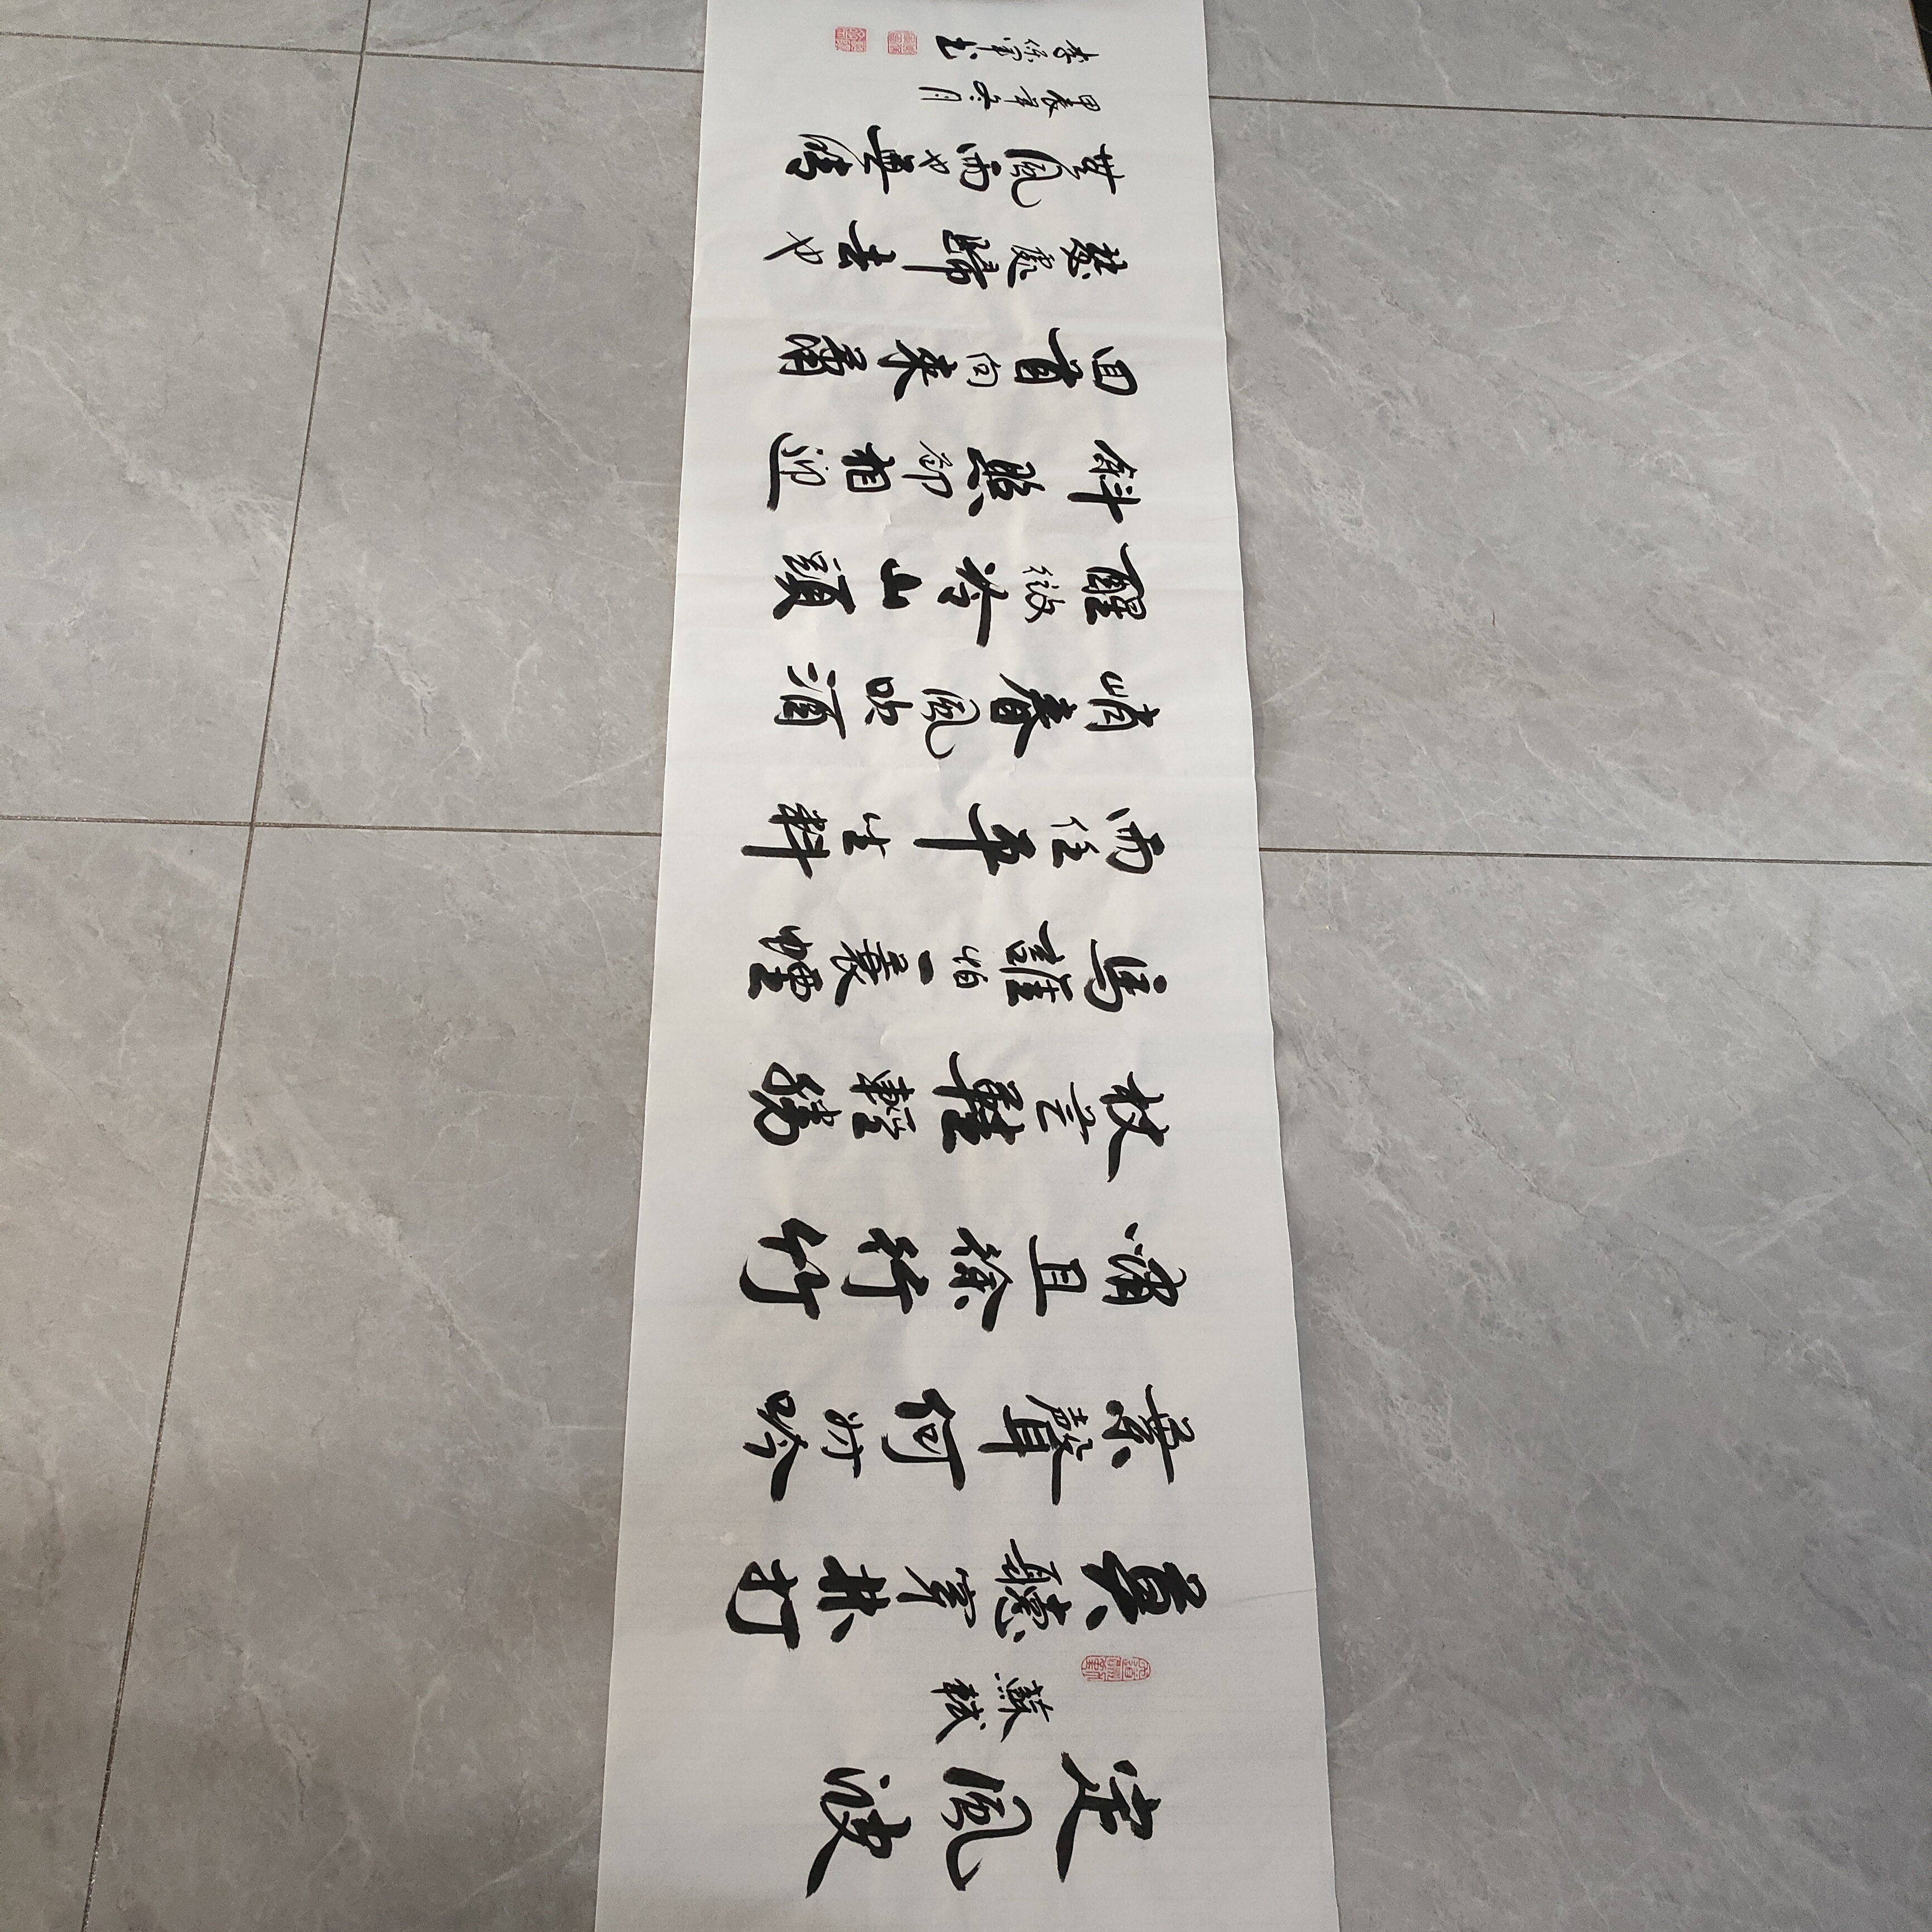 定風波
蘇軾
莫聽穿林打
葉聲何妨吟
嘯且徐行竹
杖芒鞋輕勝
馬誰怕一蓑煙
雨任平生料
峭春風吹酒
醒微冷山頭
斜照卻相迎
回首向來蕭
瑟處歸去也
無風雨也無晴
甲辰年冬月
李书